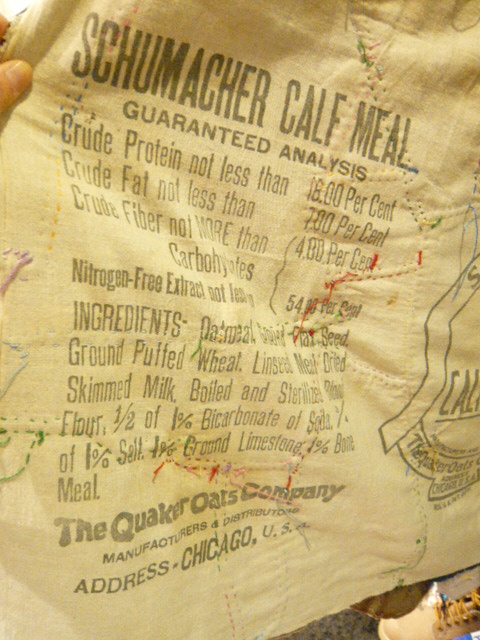 SCHUMACHER CALF MEAL
GUARANTEED ANALYSIS
Crude Protein not less than 18.00 Per Cent
Crude Fat not less than 7.00 Per Cent
Crude Fiber not MORE than 4.00 Per Cent
Carbohydrates
Nitrogen-Free Extract not less 54.00 Per Cent
INGREDIENTS- Oatmeal, Ground Flax Seed,
Ground Puffed Wheat, Linseed Meal, Dried
Skimmed Milk, Boiled and Sterilized Blood
Flour, 1/2 of 1% Bicarbonate of Soda,
of 1% Salt, 1% Ground Limestone, 1% Bone
Meal.
The Quaker Oats Company
MANUFACTURERS & DISTRIBUTORS
ADDRESS-CHICAGO, U.S.A.
The Quaker Oats